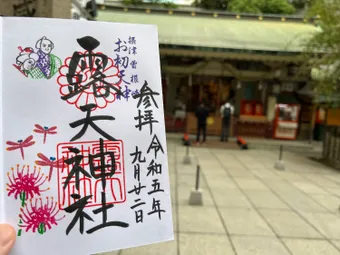 摂津曽根崎
お初天神
参拝
露天神社
令和五年
九月廿二日